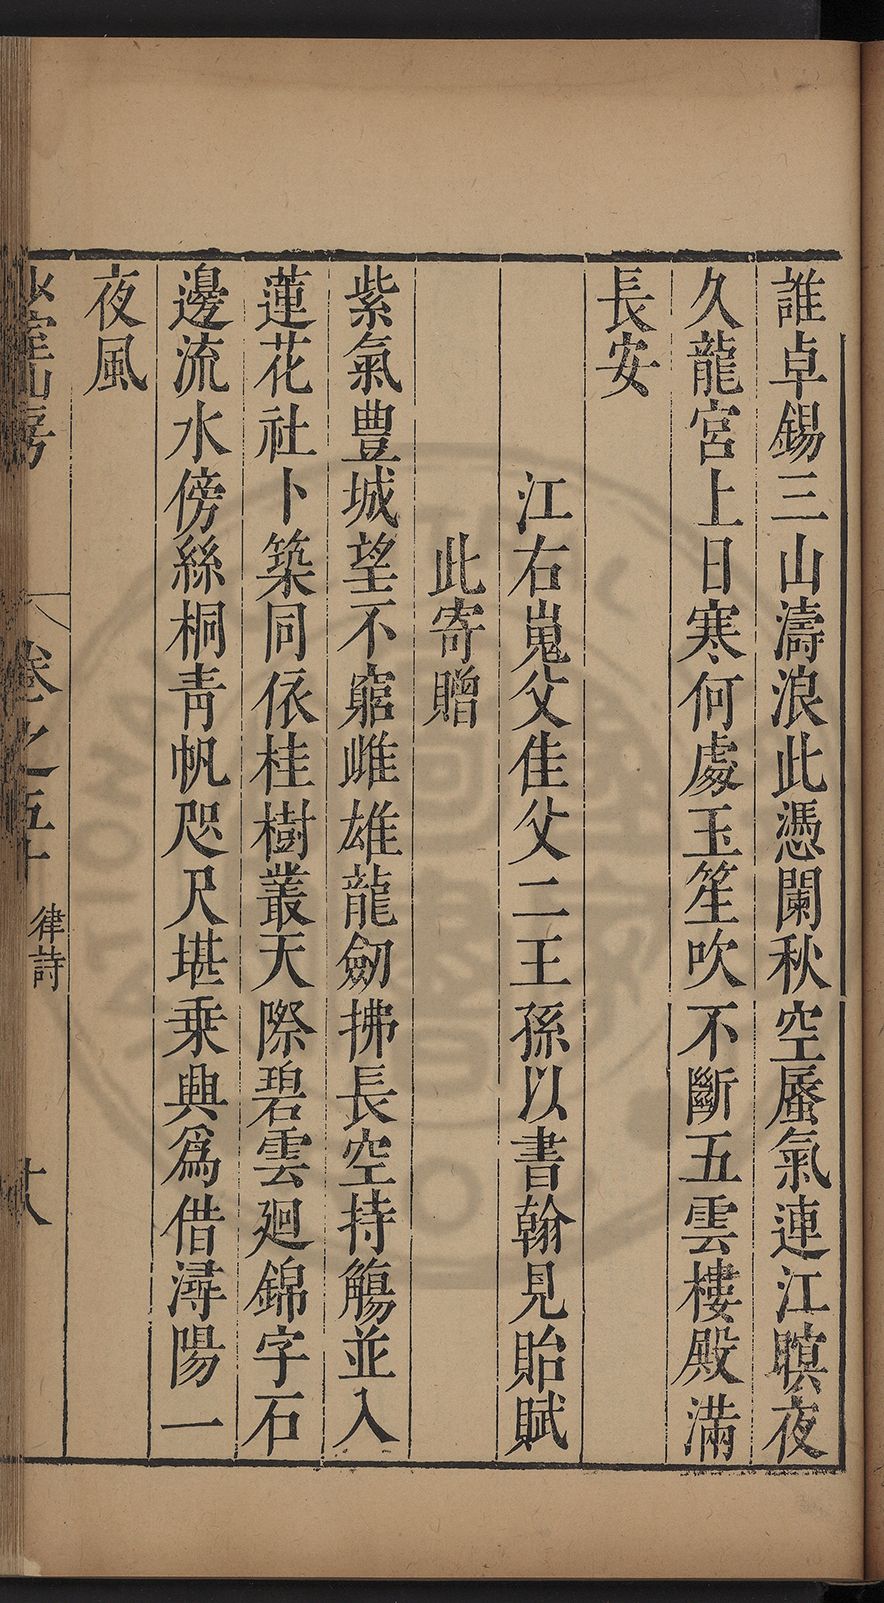 誰卓錫三山濤浪此憑闌秋空蜃氣連江暝夜
久龍宮上日寒何處玉笙吹不斷五雲樓殿滿
長安
江右嵬父佳父二王孫以書翰見貽賦
此寄贈
紫氣豐城望不窮雌雄龍劒拂長空持觴並入
蓮花社卜築同依桂樹叢天際碧雲廻錦字石
邊流水傍絲桐青帆咫尺堪乗興爲借潯陽一
夜風
山房
卷之五十 律詩